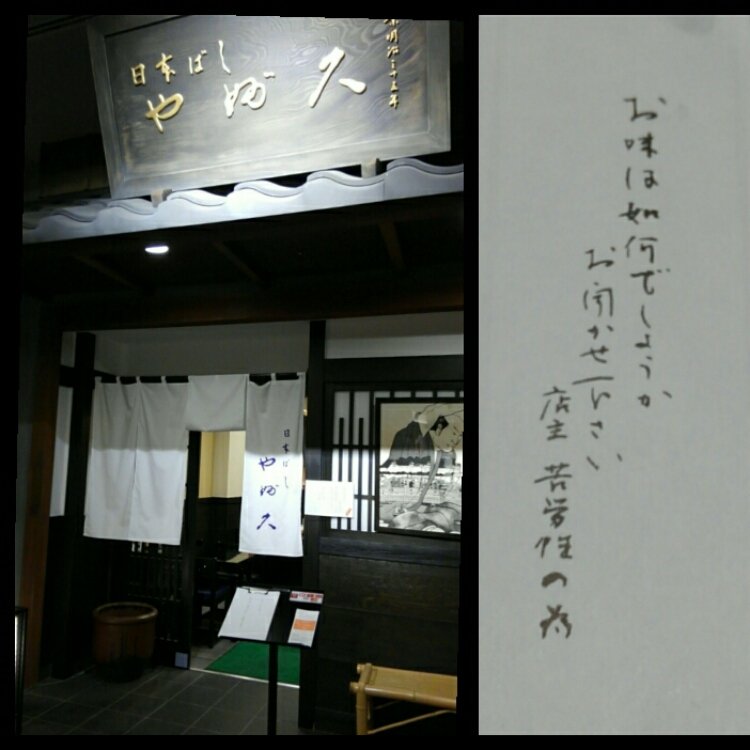 日本ばし
やぶ久
明治三十五年
日本ばし
やぶ久
お味は如何でしょうか
お聞かせ下さい
店主 苦労性の為